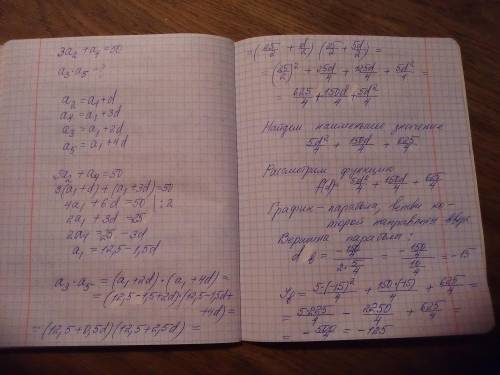 3a₂ + a₄ = 50
a₃ · a₅ -
a₂ = a₁ + d
a₄ = a₁ + 3d
a₃ = a₁ + 2d
a₅ = a₁ + 4d
3a₂ + a₄ = 50
3(a₁ + d) + (a₁ + 3d) = 50
4a₁ + 6d = 50 | : 2
2a₁ + 3d = 25
2a₁ = 25 - 3d
a₁ = 12,5 - 1,5d
a₃ · a₅ = (a₁ + 2d) · (a₁ + 4d) =
= (12,5 - 1,5 + 2d) · (12,5 - 1,5d +
+ 4d) =
= (12,5 + 0,5d)(12,5 + 2,5d) =
= (25/2 + d/2)(25/2 + 5d/2) =
= (25/2)² + 25d/4 + 125d/4 + 5d²/4 =
= 625/4 + 150d/4 + 5d²/4
Найдем наименьшее значение
5d²/4 + 150d/4 + 625/4
Рассмотрим функцию
f(d) = 5d²/4 + 150d/4 + 625/4
График - парабола, ветви ко-
торой направлены вверх.
Вершина параболы:
d в = (-150/4)/(2·5/4) = (-150/4)/(10/4) = -15
Yв = 5·(-15)²/4 + 150·(-15)/4 + 625/4 =
= 5·225/4 - 2250/4 + 625/4 =
= -500/4 = -125